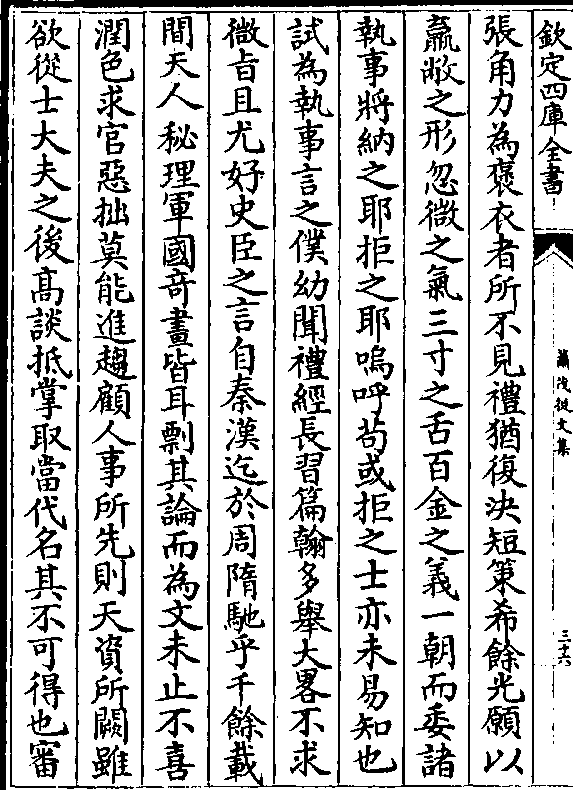 欽定四庫全書
蕭茂挺文集
三十六
張角力為褒衣者所不見禮猶復決短策希餘光願以
羸敝之形忽微之氣三寸之舌百金之義一朝而委諸
執事將納之耶拒之耶嗚呼苟或拒之士亦未易知也
試為執事言之僕幼聞禮經長習篇翰多舉大畧不求
微㫖且尤好史臣之言自秦漢迄於周隋馳乎千餘載
間天人秘理軍國竒畫皆耳剽其論而為文未止不喜
潤色求官惡拙莫能進趨顧人事所先則天資所闕雖
欲從士大夫之後高談抵掌取當代名其不可得也審